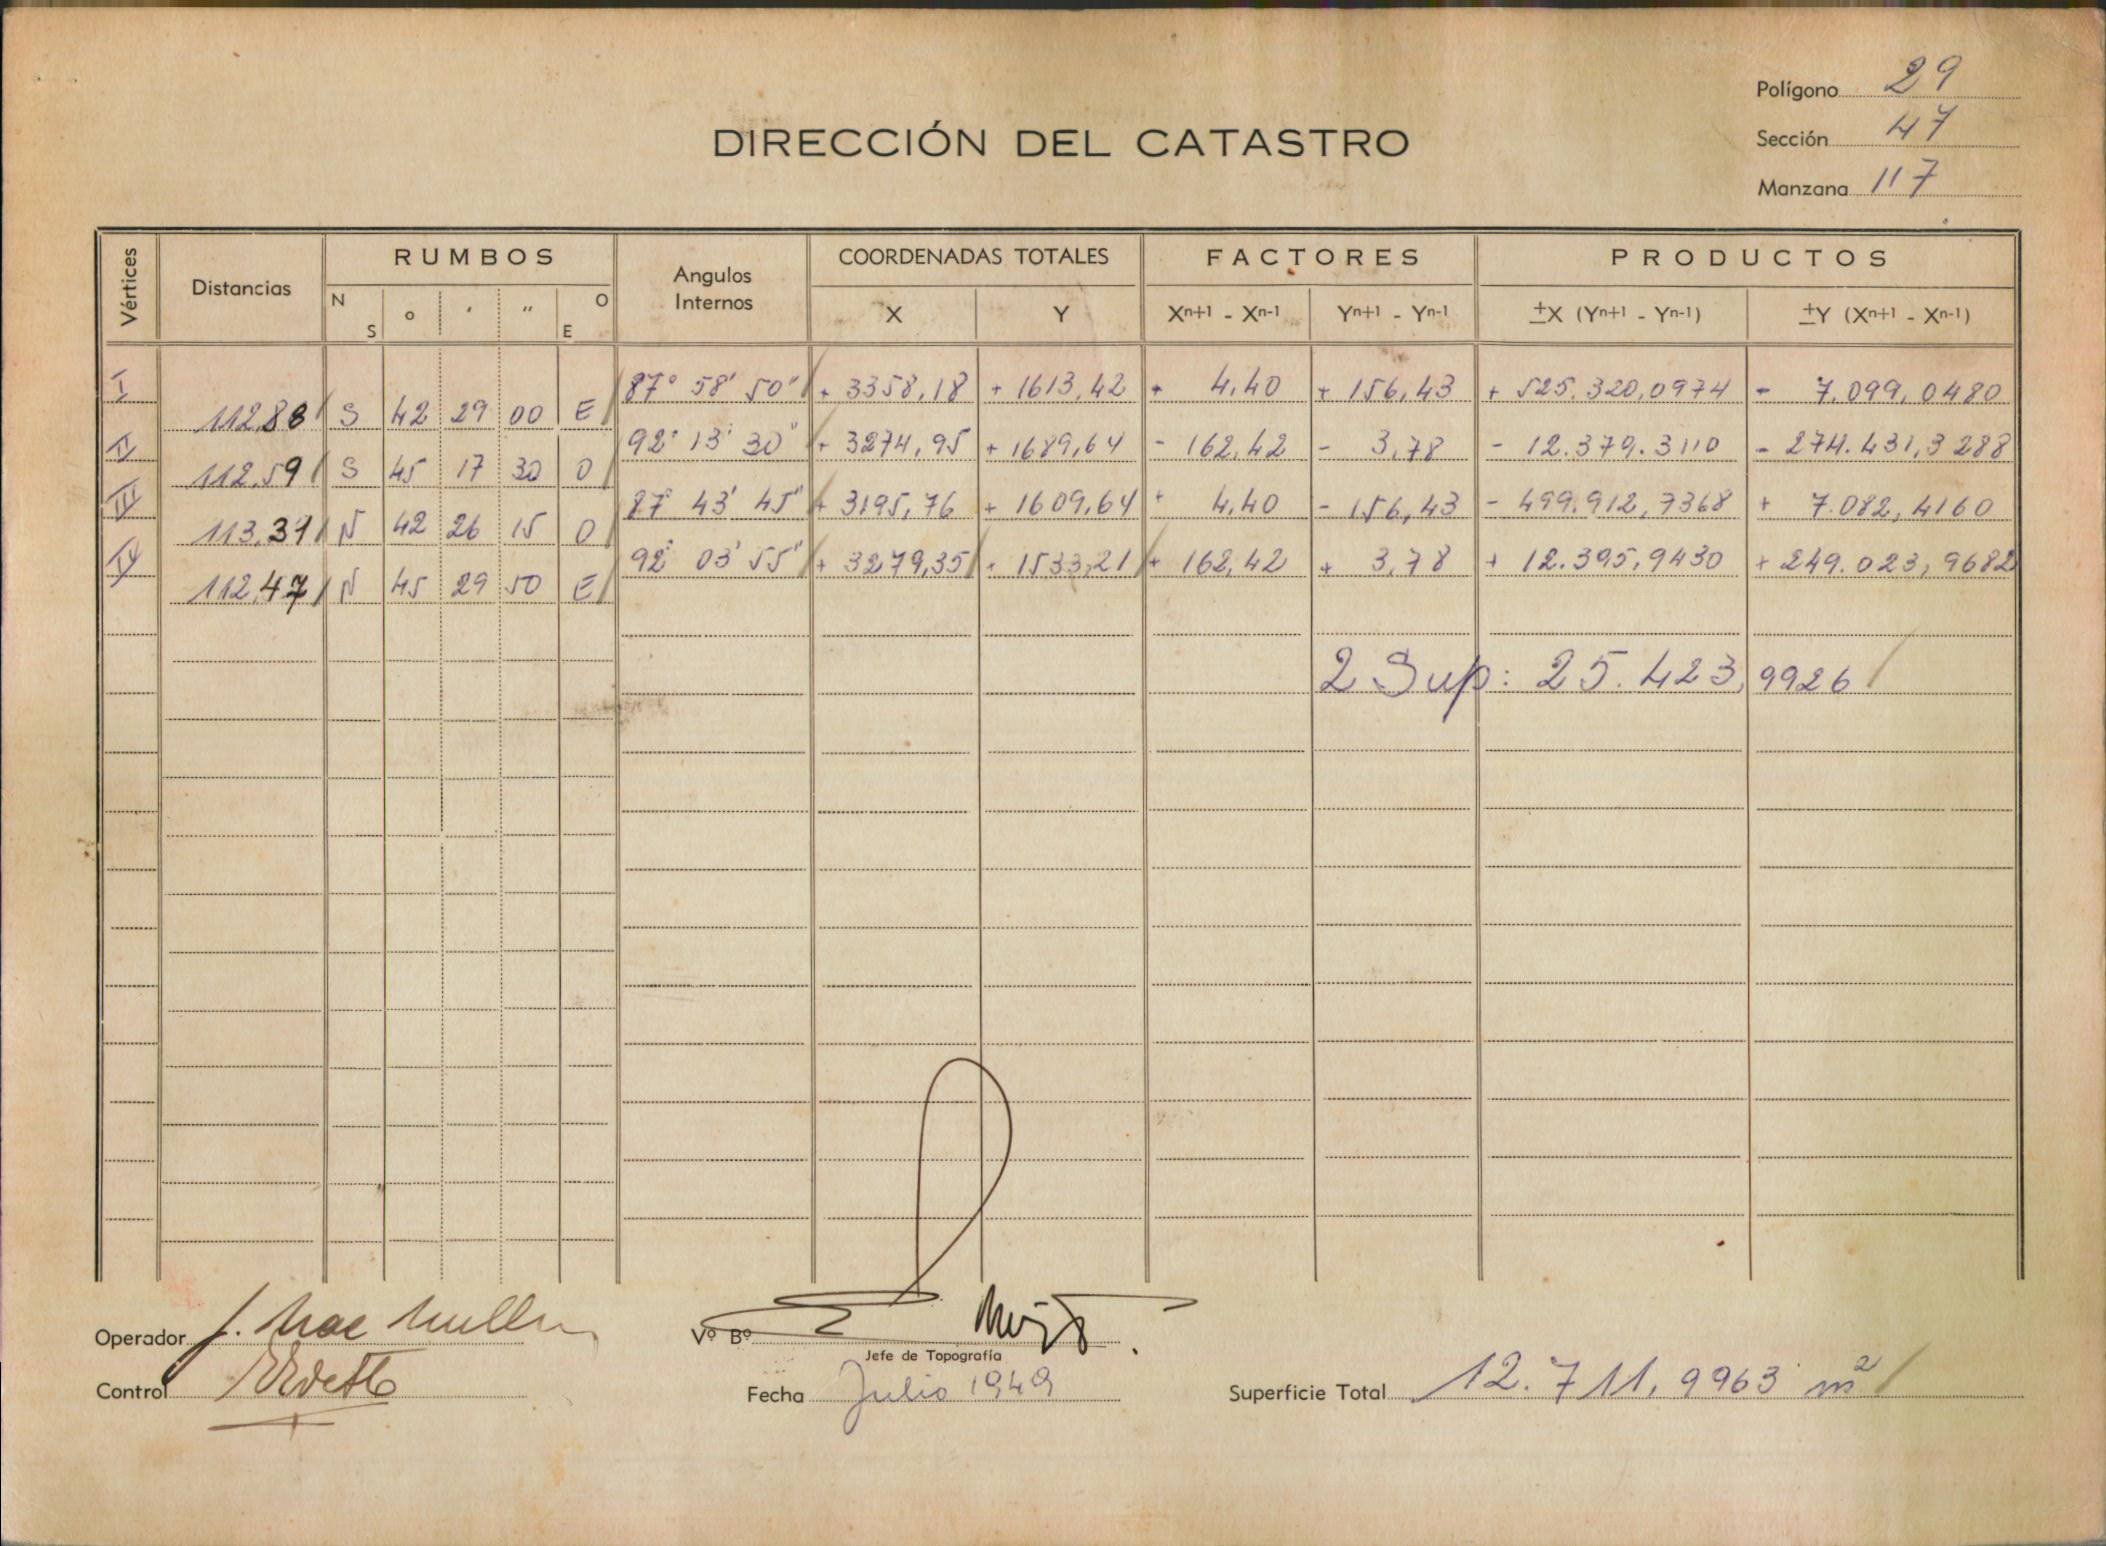 Polígono 29
DIRECCIÓN DEL CATASTRO
Sección 47
Manzana 117
Vértices Distancias RUMBOS Angulos Internos COORDENADAS TOTALES FACTORES PRODUCTOS
N S ° ′ ″ O E X Y Xⁿ⁺¹ - Xⁿ⁻¹ Yⁿ⁺¹ - Yⁿ⁻¹ ±X (Yⁿ⁺¹ - Yⁿ⁻¹) ±Y (Xⁿ⁺¹ - Xⁿ⁻¹)
I 87° 58' 50" + 3358,18 + 1613,42 + 4,40 + 156,43 + 525.320,0974 - 7.099,0480
112,88 S 42 29 00 E
II 92° 13' 30" + 3274,95 + 1689,64 - 162,42 - 3,78 - 12.379.3110 - 274.431,3288
112,59 S 45 17 30 O
III 87° 43' 45" + 3195,76 + 1609,64 + 4,40 - 156,43 - 499.912,7368 + 7.082,4160
113,39 N 42 26 15 O
IV 92° 03' 55" + 3279,35 + 1533,21 + 162,42 + 3,78 + 12.395,9430 + 249.023,9682
112,47 N 45 29 50 E
2 Sup: 25.423,9926
Operador J. Mac Mullen
Vº Bº
Jefe de Topografía
Control
Fecha Julio 1949
Superficie Total 12.711,9963 m²